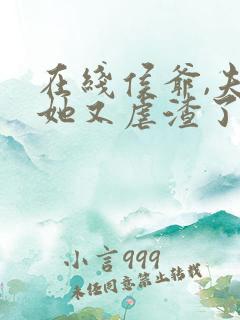 在线侯爷,夫
她又虐渣了
小言999
未经同意禁止转载